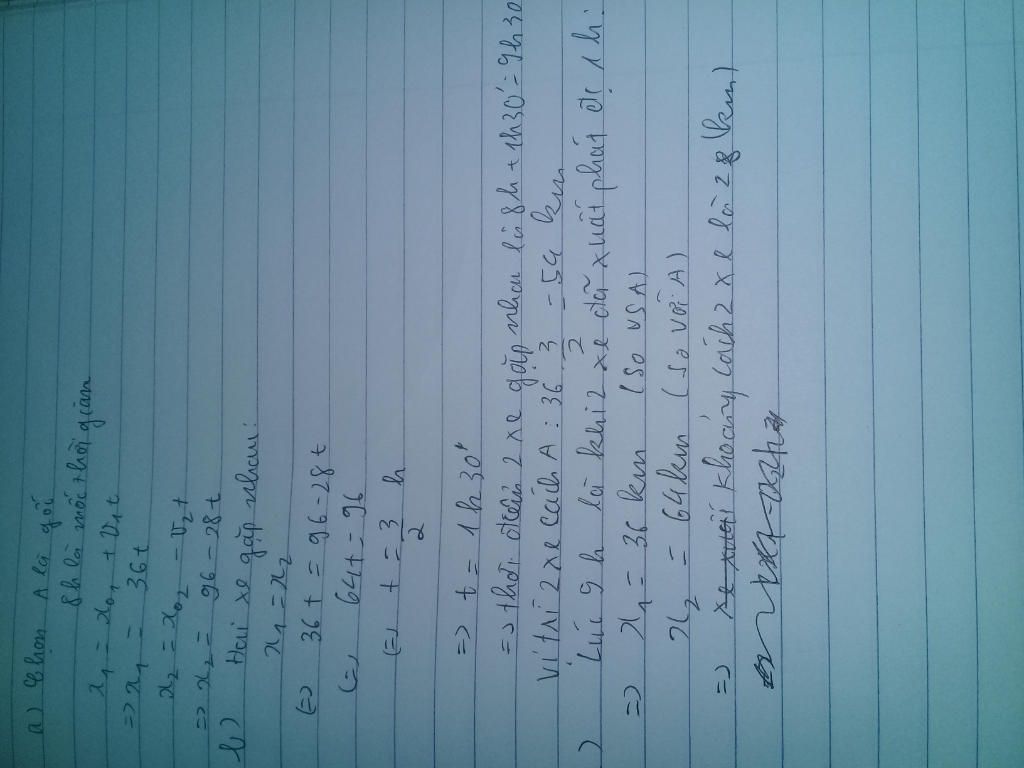 a) Chọn A là gốc
8h là mốc thời gian
x₁ = x₀₁ + v₁t
=> x₁ = 36t
x₂ = x₀₂ - v₂t
=> x₂ = 96 - 28t
b) Hai xe gặp nhau:
x₁ = x₂
(=) 36t = 96 - 28t
(=) 64t = 96
(=) t = 3/2 h
=> t = 1h30'
=> thời điểm 2 xe gặp nhau là 8h + 1h30' = 9h30
Vị trí 2 xe cách A : 36 . 3/2 = 54 km
) Lúc 9h là khi 2 xe đã xuất phát đi 1h.
=> x₁ = 36 km (so vs A)
x₂ = 64km (so với A)
=> Khoảng cách 2 xe là 28 (km)